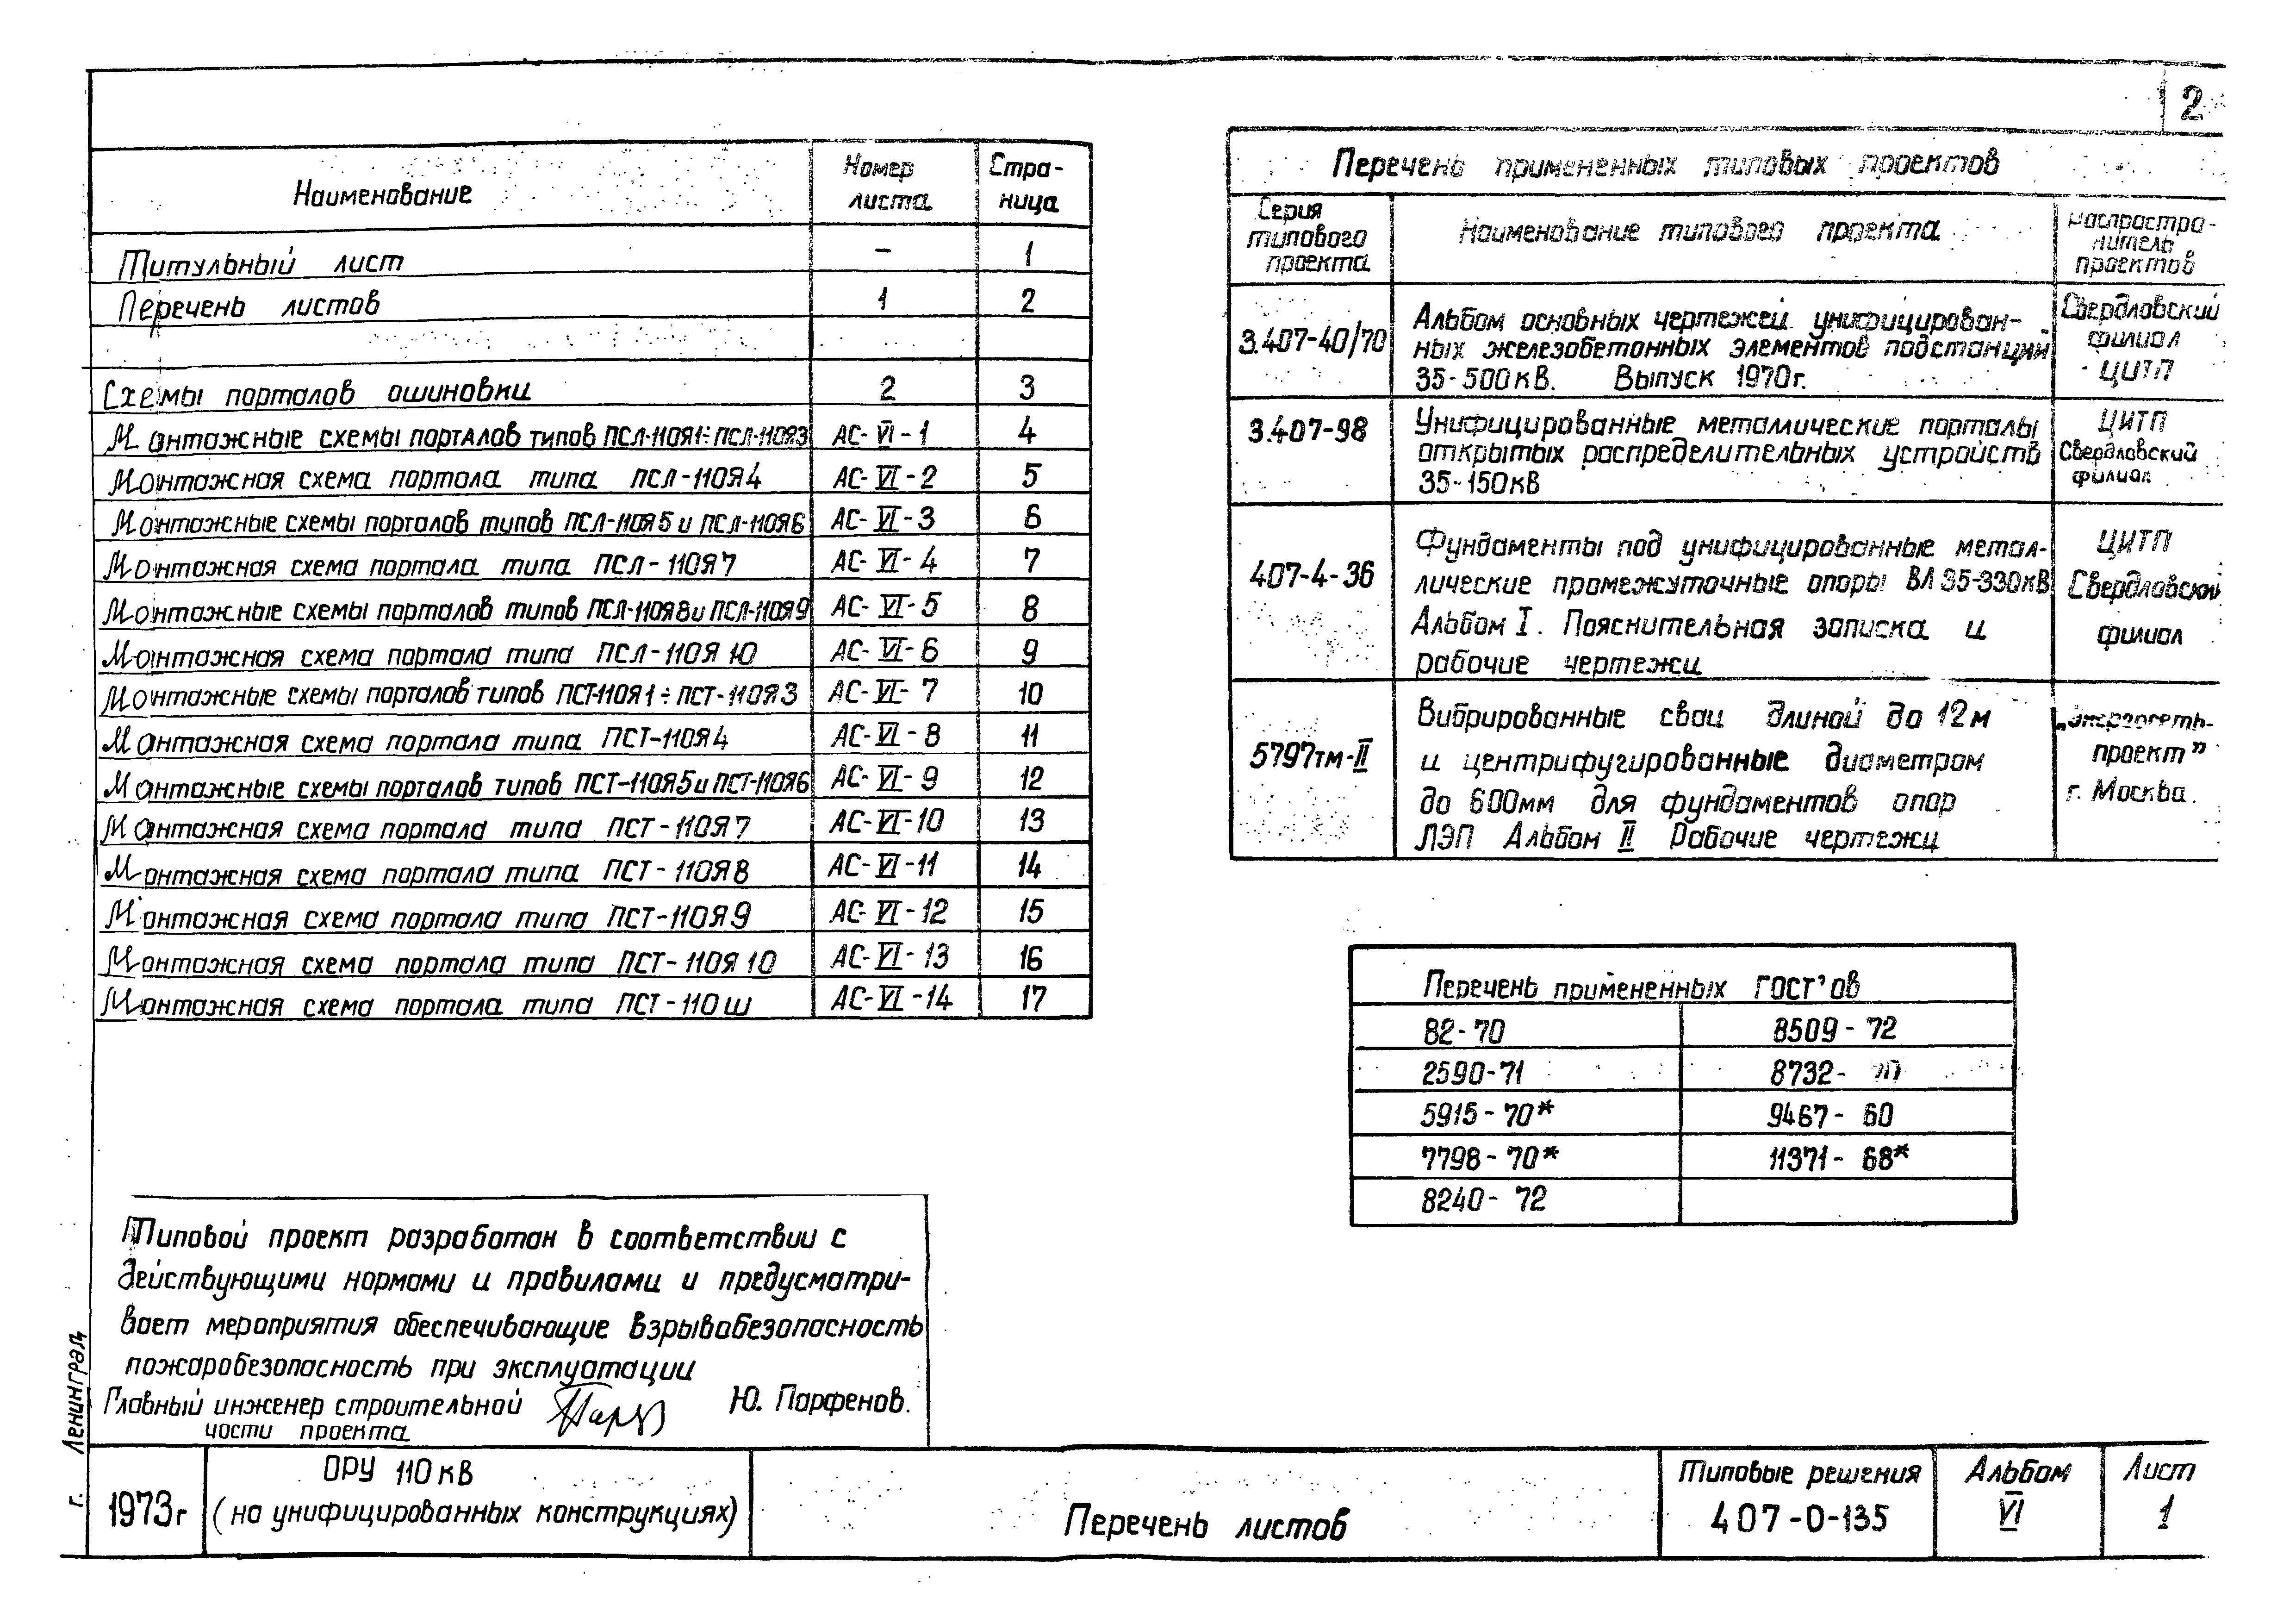 2
Наименование Номер листа Стра-ница
Титульный лист – 1
Перечень листов 1 2
Схемы порталов ошиновки 2 3
Монтажные схемы порталов типов ПСЛ-110Я1÷ПСЛ-110Я3 АС-VI-1 4
Монтажная схема портала типа ПСЛ-110Я4 АС-VI-2 5
Монтажные схемы порталов типов ПСЛ-110Я5 и ПСЛ-110Я6 АС-VI-3 6
Монтажная схема портала типа ПСЛ-110Я7 АС-VI-4 7
Монтажные схемы порталов типов ПСЛ-110Я8 и ПСЛ-110Я9 АС-VI-5 8
Монтажная схема портала типа ПСЛ-110Я10 АС-VI-6 9
Монтажные схемы порталов типов ПСТ-110Я1÷ПСТ-110Я3 АС-VI-7 10
Монтажная схема портала типа ПСТ-110Я4 АС-VI-8 11
Монтажные схемы порталов типов ПСТ-110Я5 и ПСТ-110Я6 АС-VI-9 12
Монтажная схема портала типа ПСТ-110Я7 АС-VI-10 13
Монтажная схема портала типа ПСТ-110Я8 АС-VI-11 14
Монтажная схема портала типа ПСТ-110Я9 АС-VI-12 15
Монтажная схема портала типа ПСТ-110Я10 АС-VI-13 16
Монтажная схема портала типа ПСТ-110Ш АС-VI-14 17
Перечень примененных типовых проектов
Серия типового проекта Наименование типового проекта Распростра-нитель проектов
3.407-40/70 Альбом основных чертежей унифицирован-
ных железобетонных элементов подстанции
35-500кВ. Выпуск 1970г.
Свердловский
филиал
ЦИТП
3.407-98 Унифицированные металлические порталы
открытых распределительных устройств
35-150кВ
ЦИТП
Свердловский
филиал
407-4-36 Фундаменты под унифицированные метал-
лические промежуточные опоры ВЛ 35-330кВ
Альбом I. Пояснительная записка и
рабочие чертежи
ЦИТП
Свердловский
филиал
5797тм-II Вибрированные сваи длиной до 12м
и центрифугированные диаметром
до 600мм для фундаментов опор
ЛЭП Альбом II Рабочие чертежи
„Энергосеть-
проект”
г. Москва.
Перечень примененных ГОСТ'ов
82-70 8509-72
2590-71 8732-70
5915-70* 9467-60
7798-70* 11371-68*
8240-72
Типовой проект разработан в соответствии с
действующими нормами и правилами и предусматри-
вает мероприятия обеспечивающие взрывобезопасность
пожаробезопасность при эксплуатации
Главный инженер строительной
части проекта
Ю. Парфенов.
г. Ленинград
1973г
ОРУ 110кВ
(на унифицированных конструкциях)
Перечень листов
Типовые решения
407-0-135
Альбом
VI
Лист
1